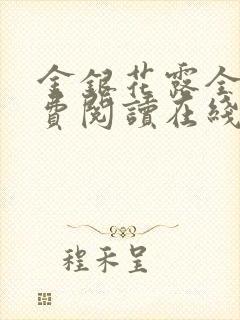 金銀花露全
費閱讀在綫
程禾呈